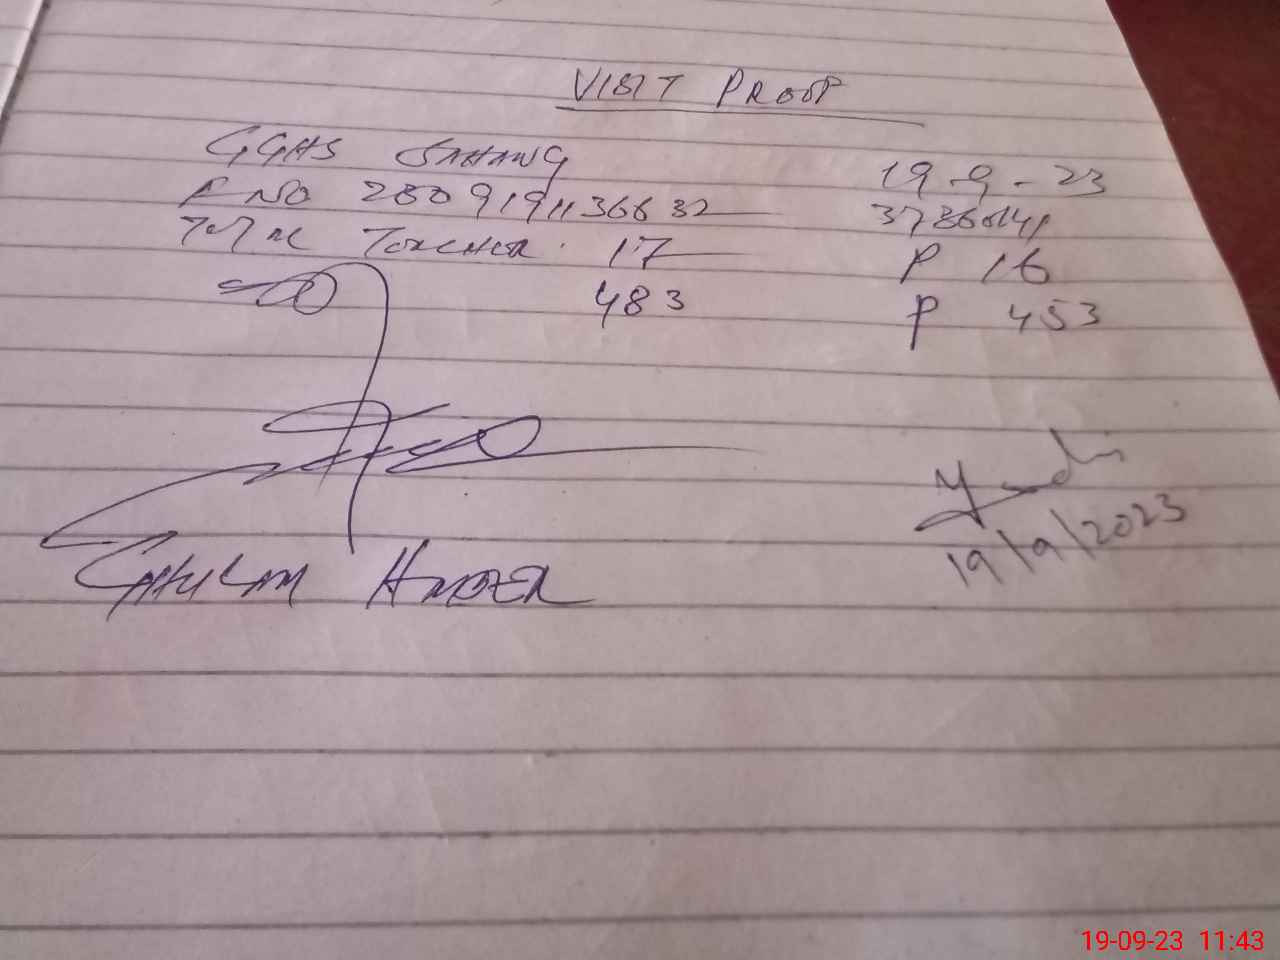 VISIT PROOF
GGHS SAHANG 19-9-23
R NO 2809191136632
Total Teacher 17 P 16
483 P 453
19/9/2023
GHULAM HAIDER
19-09-23 11:43